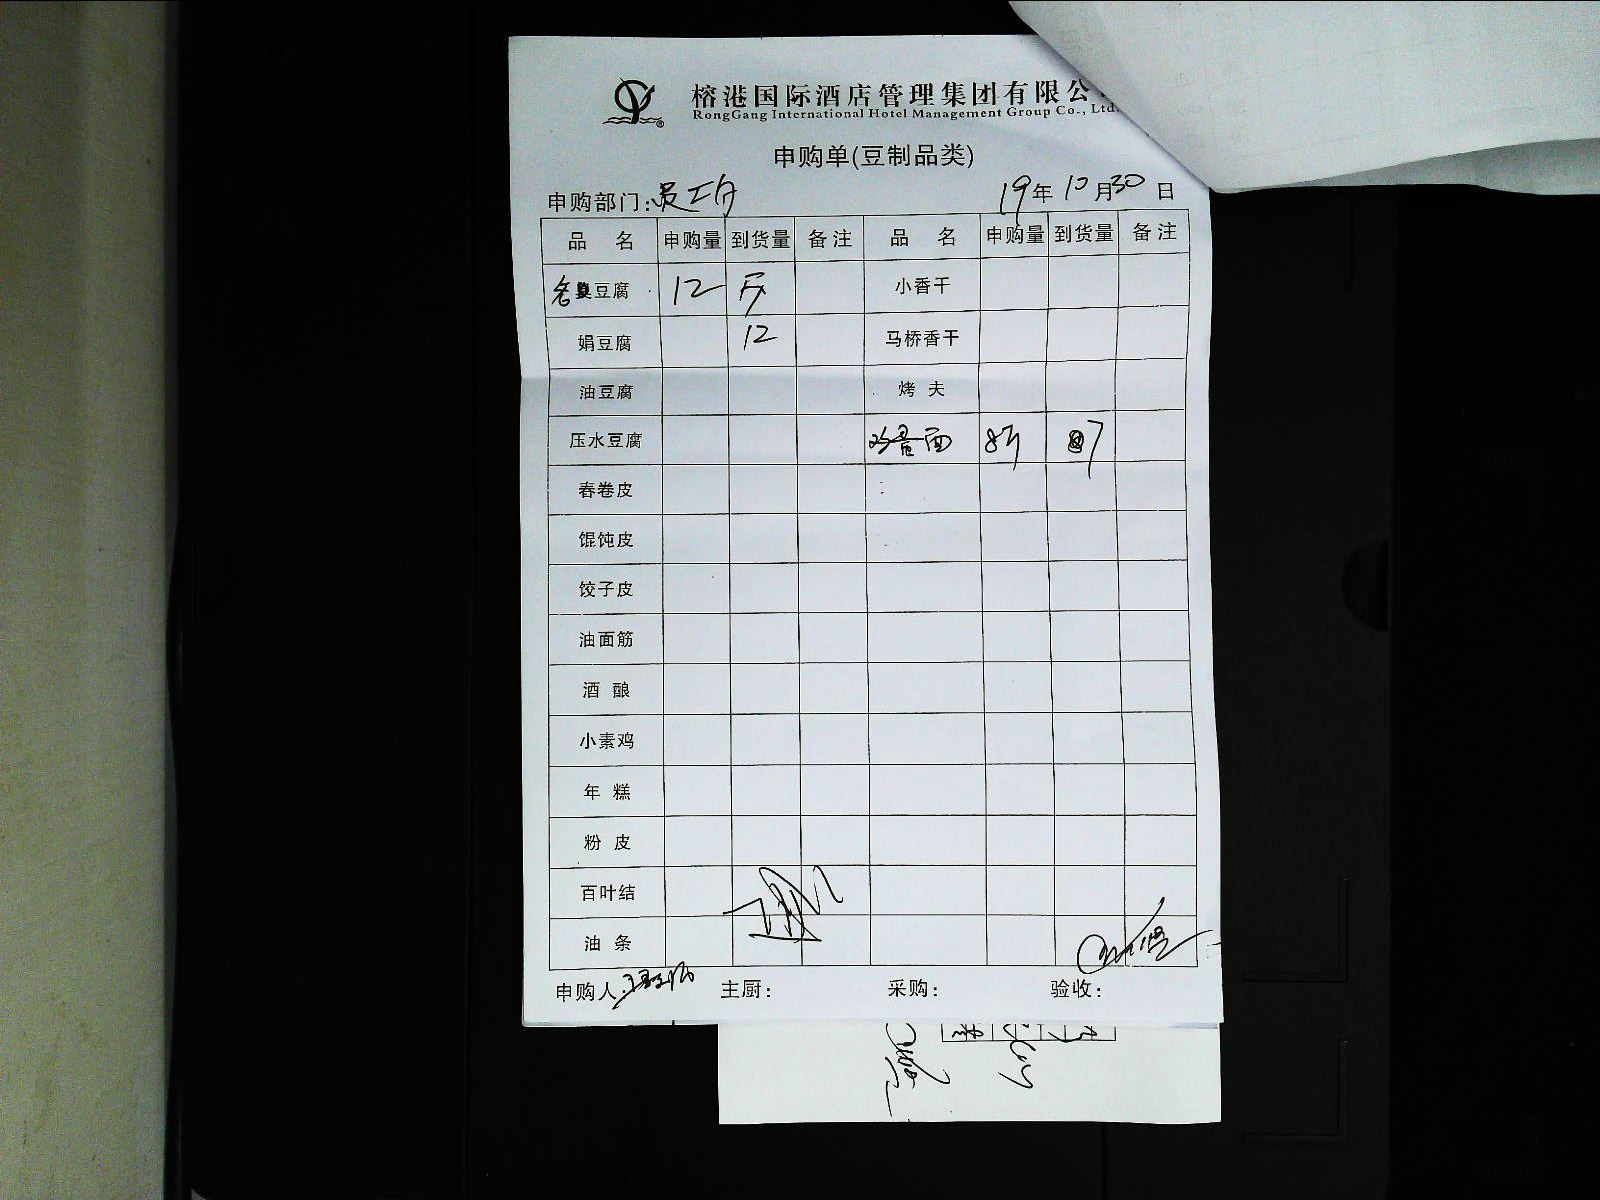 榕港国际酒店管理集团有限公
RongGang International Hotel Management Group Co., Ltd.
申购单(豆制品类)
申购部门: 19年10月30日
品 名 申购量 到货量 备注 品 名 申购量 到货量 备注
豆腐 12 小香干
娟豆腐 12 马桥香干
油豆腐 烤 夫
压水豆腐 鸡蛋面 8斤 7
春卷皮
馄饨皮
饺子皮
油面筋
酒 酿
小素鸡
年 糕
粉 皮
百叶结
油 条
申购人: 主厨: 采购: 验收: